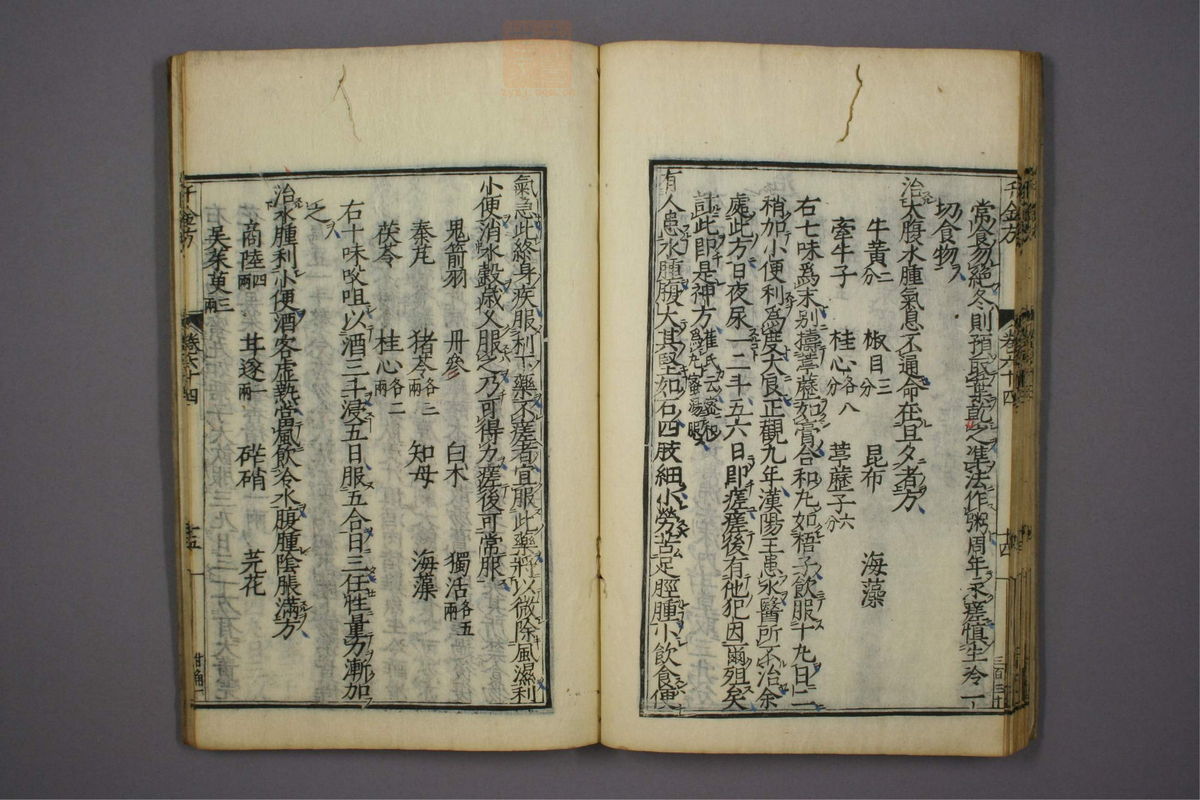 常食勿絶冬則預取葉乾之準法作粥周年永瘥慎生冷一
切食物
治大腹水腫氣息不通命在旦夕者方
牛黄二分 椒目三分 昆布 海藻
牽牛子 桂心各八分 葶藶子六分
右七味爲末别擣葶藶如膏合和丸如梧子飲服十丸日二
稍加小便利爲度大良正觀九年漢陽王患水醫所不治余
處此方日夜尿一二斗五六日即瘥瘥後有他犯因爾殂矣
計此即是神方崔氏云蜜和爲丸蜜湯服
有人患水腫腹大其堅如石四肢細小勞苦足脛腫小飲食便
千金方 卷六十四 十四
氣急此終身疾服利下藥不瘥者宜服此藥將以微除風濕利
小便消水穀歳久服之乃可得力瘥後可常服
鬼箭羽 丹參 白术 獨活各五兩
秦芃 猪苓各三兩 知母 海藻
茯苓 桂心各二兩
右十味㕮咀以酒三斗浸五日服五合日三任性量力漸加
之
治水腫利小便酒客虚熱當風飲冷水腹腫陰脹滿方
商陸四兩 甘遂一兩 硭硝 芫花
吴茱萸三兩
千金方 卷六十四 十五